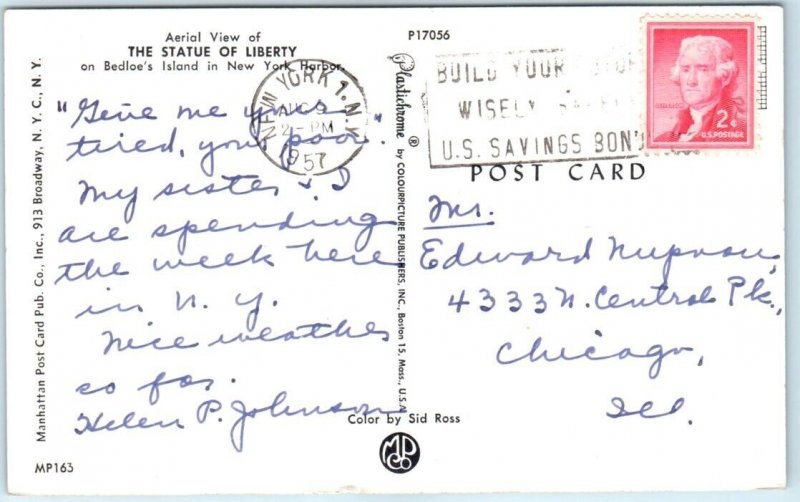 Aerial View of
THE STATUE OF LIBERTY
on Bedloe's Island in New York Harbor.
"Give me your
tired, your poor."
My sister & I
are spending
the week here
in N. Y.
Nice weather
so far.
Helen P. Johnson
MP163
Manhattan Post Card Pub. Co., Inc., 913 Broadway, N. Y. C., N. Y.
P17056
Plastichrome ® by COLOURPICTURE PUBLISHERS, INC., Boston 15, Mass., U.S.A.
NEW YORK 1, N.Y.
AUG 9
2 - PM
1957
BUILD YOUR
WISELY
U.S. SAVINGS BONDS
2¢
U.S. POSTAGE
POST CARD
Mr.
Edward
4333 N. Central Pk.,
Chicago,
Ill.
Color by Sid Ross
MP
CO